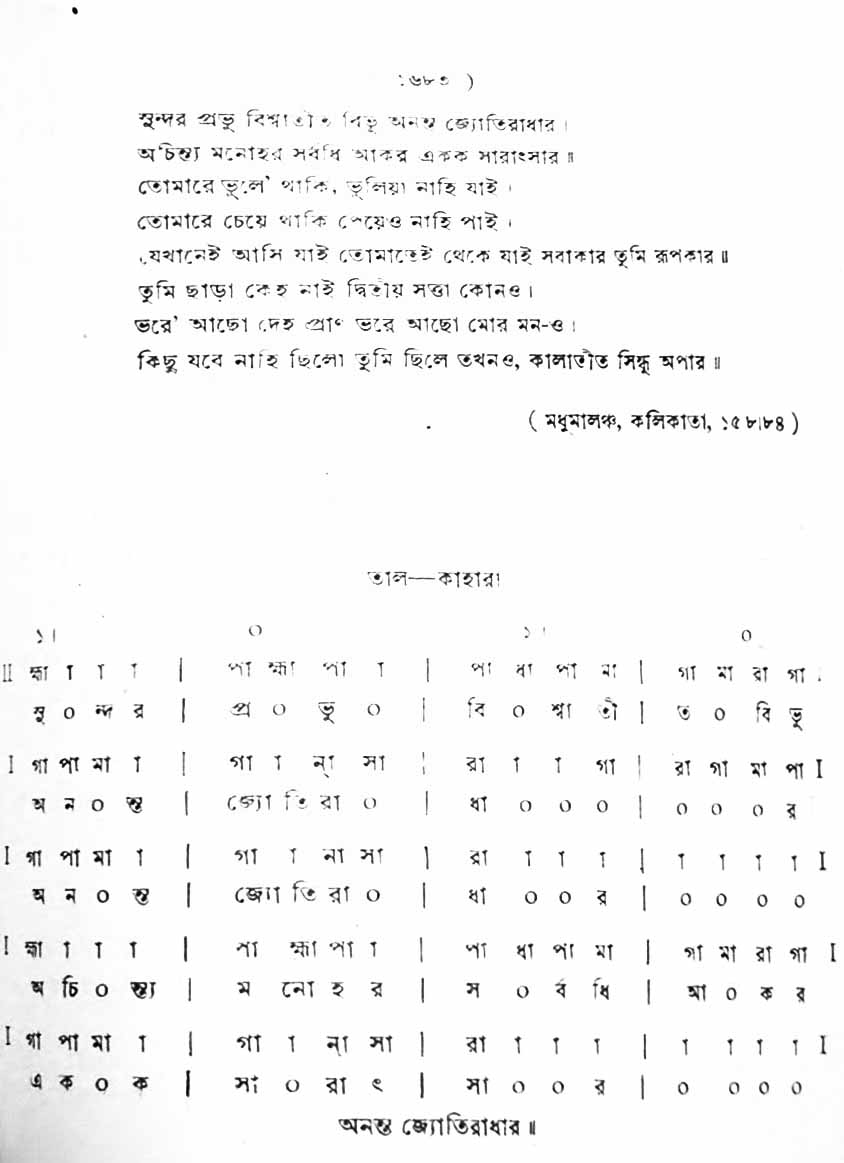 ১৬৮৩ )
সুন্দর প্রভু বিশ্বাতীত বিভু অনন্ত জ্যোতিরাধার।
অচিন্ত্য মনোহর সর্বধি আকর একক সারাংসার॥
তোমারে ভুলে' থাকি, ভুলিয়া নাহি যাই।
তোমারে চেয়ে থাকি পেয়েও নাহি পাই।
যেখানেই আসি যাই তোমাতেই থেকে যাই সবাকার তুমি রূপকার॥
তুমি ছাড়া কেহ নাই দ্বিতীয় সত্তা কোনও।
ভরে' আছো দেহ প্রাণ ভরে আছো মোর মন-ও।
কিছু যবে নাহি ছিলো তুমি ছিলে তখনও, কালাতীত সিন্ধু অপার॥
( মধুমালঞ্চ, কলিকাতা, ১৫৮।৮৪ )
তাল—কাহারবা
১। ০ ১। ০
II হ্মা া া া | পা হ্মা পা া | পা ধা পা মা | গা মা রা গা
সু ০ ন্দ র | প্র ০ ভু ০ | বি ০ শ্বা তী | ত ০ বি ভু
I গা পা মা া | গা া ন্া সা | রা া া গা | রা গা মা পা I
অ ন ০ ন্ত | জ্যো তি রা ০ | ধা ০ ০ ০ | ০ ০ ০ র
I গা পা মা া | গা া না সা | রা া া া | া া া া I
অ ন ০ ন্ত | জ্যো তি রা ০ | ধা ০ ০ র | ০ ০ ০ ০
I হ্মা া া া | পা হ্মা পা া | পা ধা পা মা | গা মা রা গা I
অ চি ০ ন্ত্য | ম নো হ র | স ০ র্ব ধি | আ ০ ক র
I গা পা মা া | গা া ন্া সা | রা া া া | া া া া I
এ ক ০ ক | সা ০ রা ৎ | সা ০ ০ র | ০ ০ ০ ০
অনন্ত জ্যোতিরাধার॥